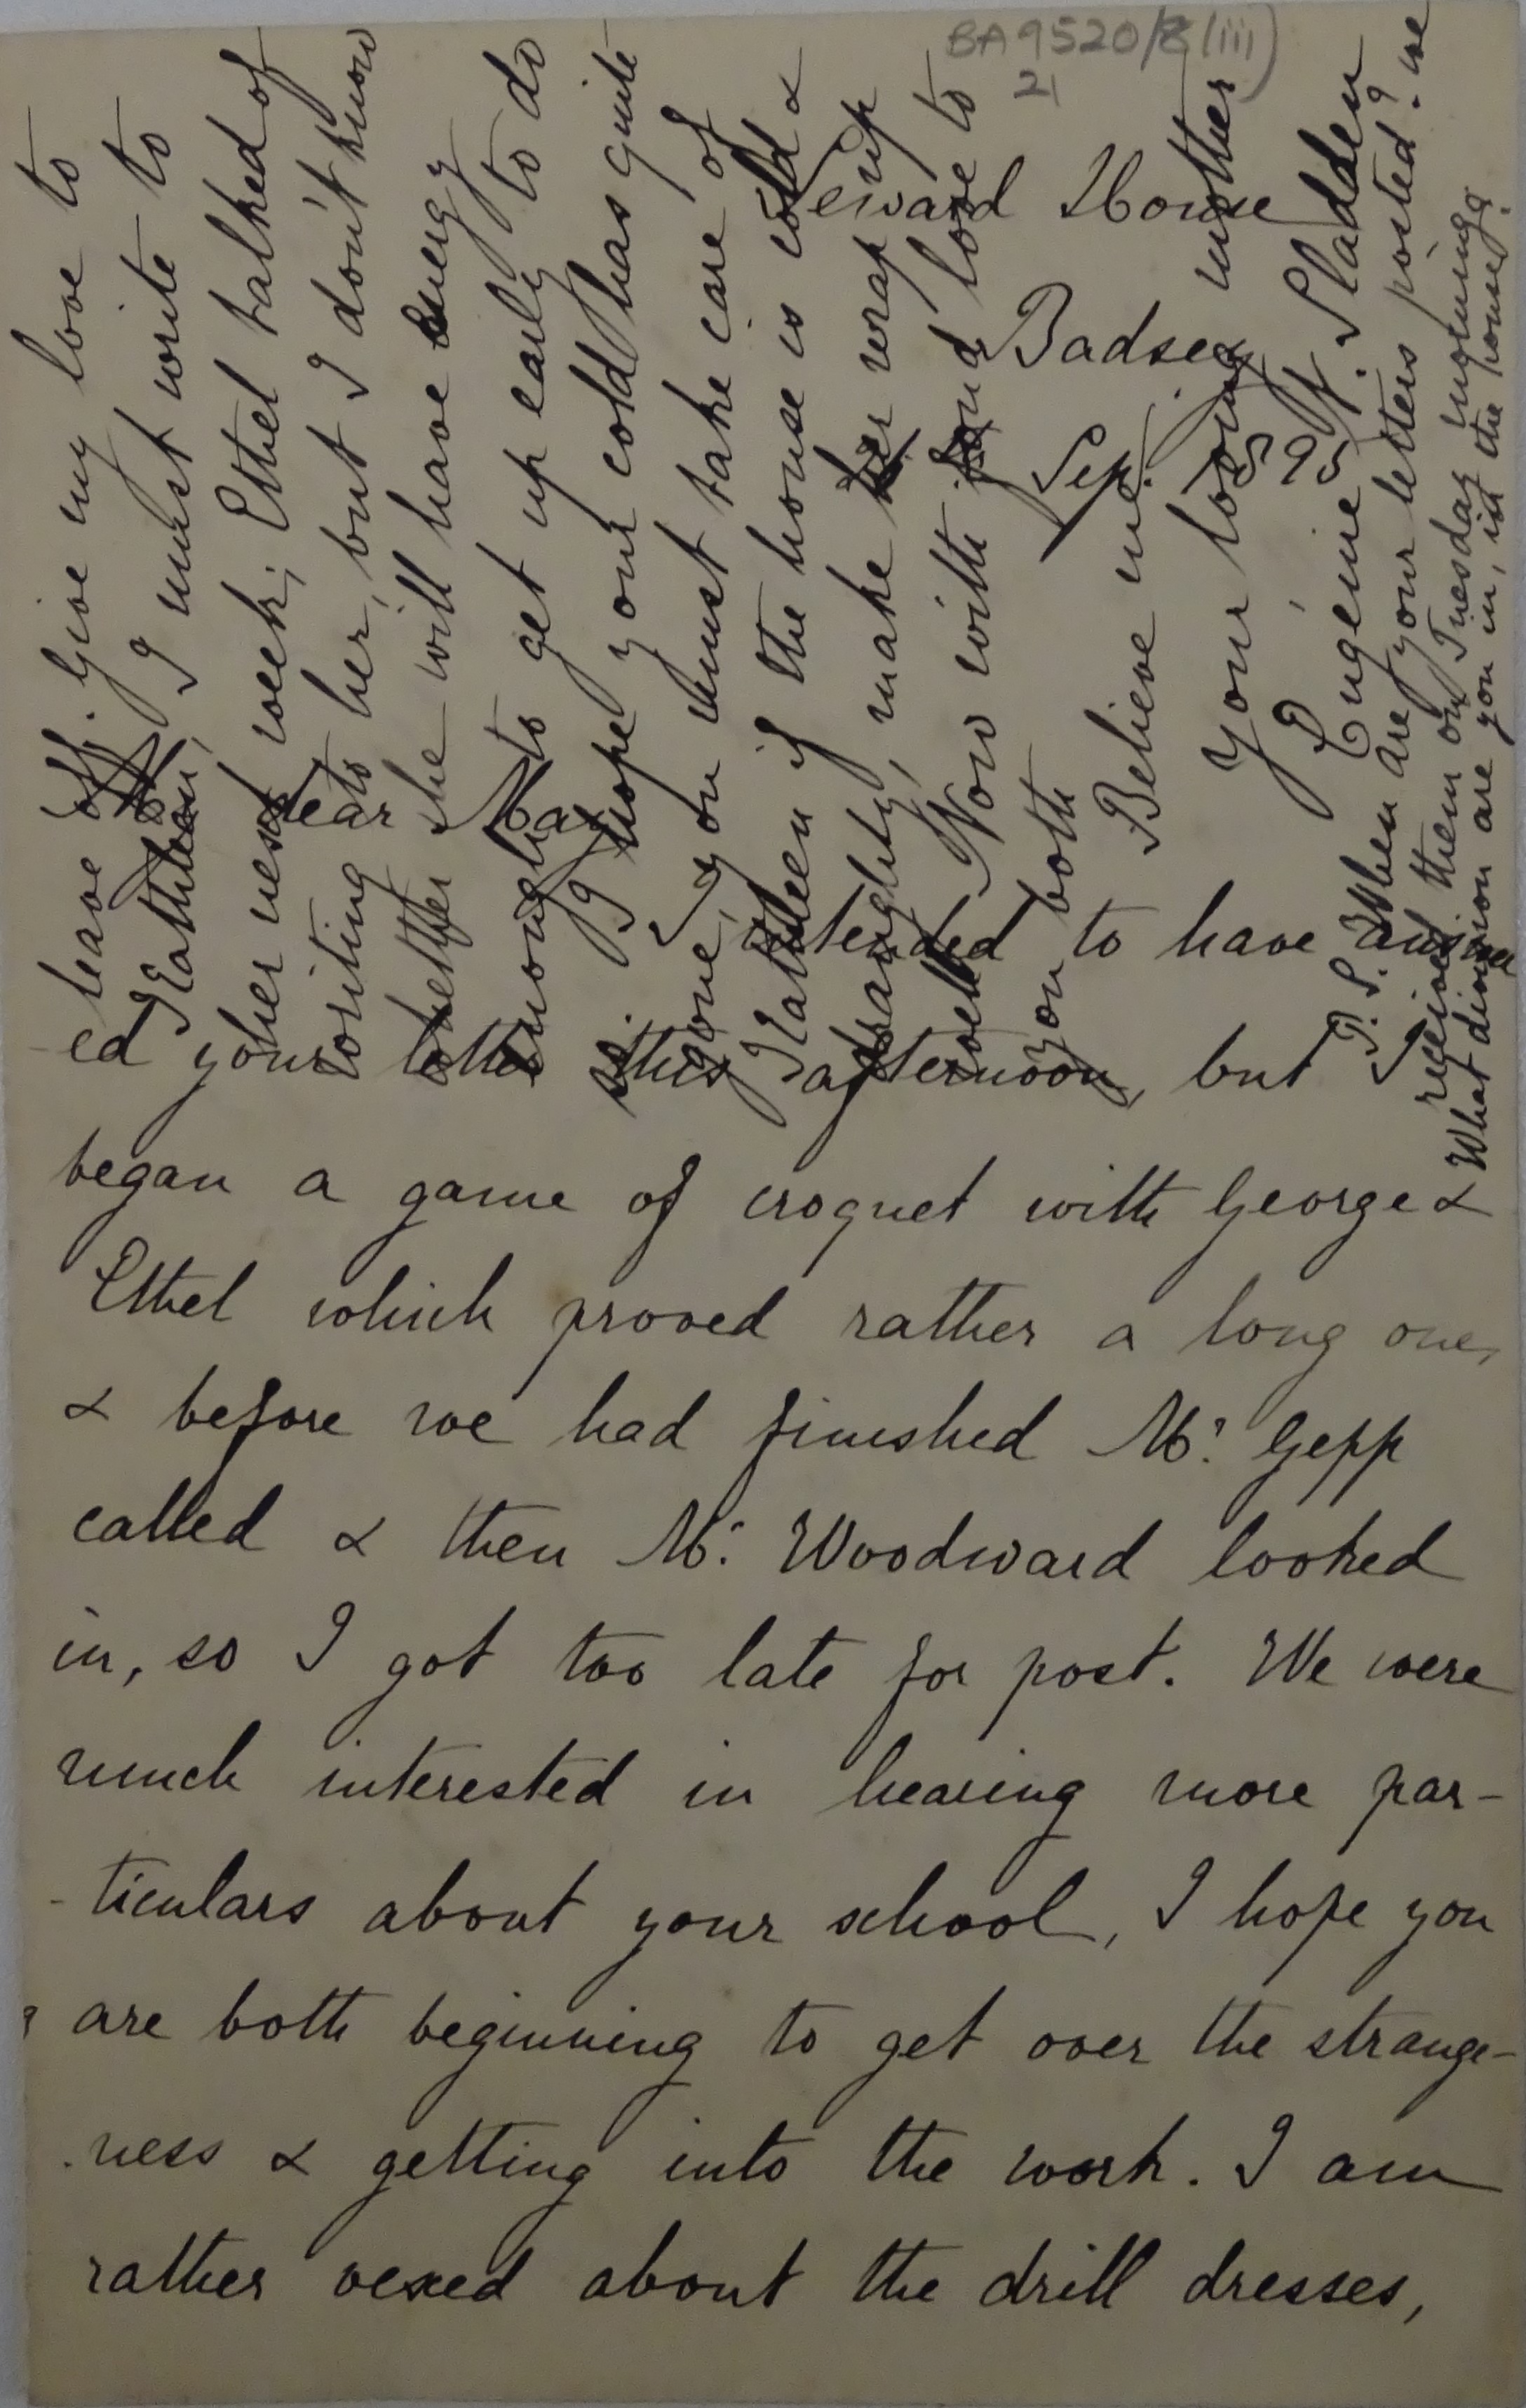 BA 9520/8(iii)
21
Seward House
Badsey
Sep. 1895
My dear May
I intended to have answer
ed your letter this afternoon, but I
began a game of croquet with George &
Ethel which proved rather a long one,
& before we had finished Mr. Gepp
called & then Mr. Woodward looked
in, so I got too late for post. We were
much interested in hearing more par-
-ticulars about your school, I hope you
are both beginning to get over the strange-
-ness & getting into the work. I am
rather vexed about the drill dresses,
leave off. Give my love to
Kathleen, I must write to
her next week; Ethel talked of
writing to her, but I don't know
whether she will have energy
enough to get up early to do
it. I hope your cold has quite
gone, you must take care of
Kathleen if the house is cold &
draughty, make her wrap up
well. Now with fond love to
you both
Believe me
Your loving mother
Eugénie N. Sladden
P.S. When are your letters posted? we
receive them on Tuesday morning.
What division are you in, in the house?